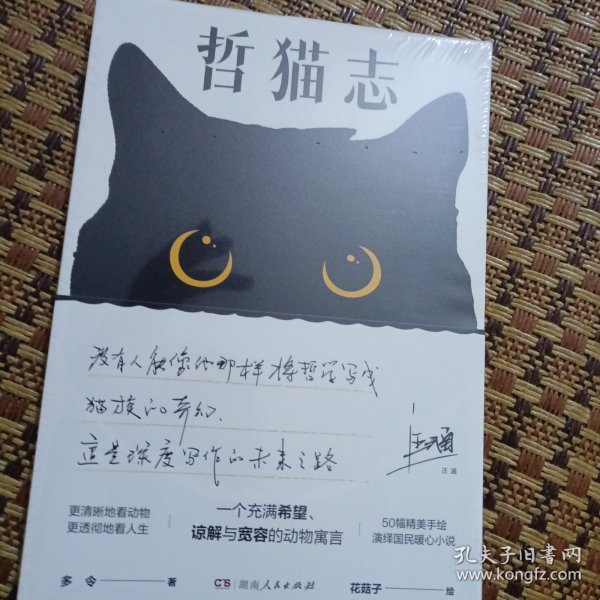 哲猫志
没有人能像他那样将哲学写成
猫族的奇幻、
这是深度写作的未来之路
汪涵
汪涵
更清晰地看动物
更透彻地看人生
一个充满希望、
谅解与宽容的动物寓言
50幅精美手绘
演绎国民暖心小说
多令 著
CS 湖南人民出版社
花菇子 绘
孔夫子旧书网
www.kongfz.com